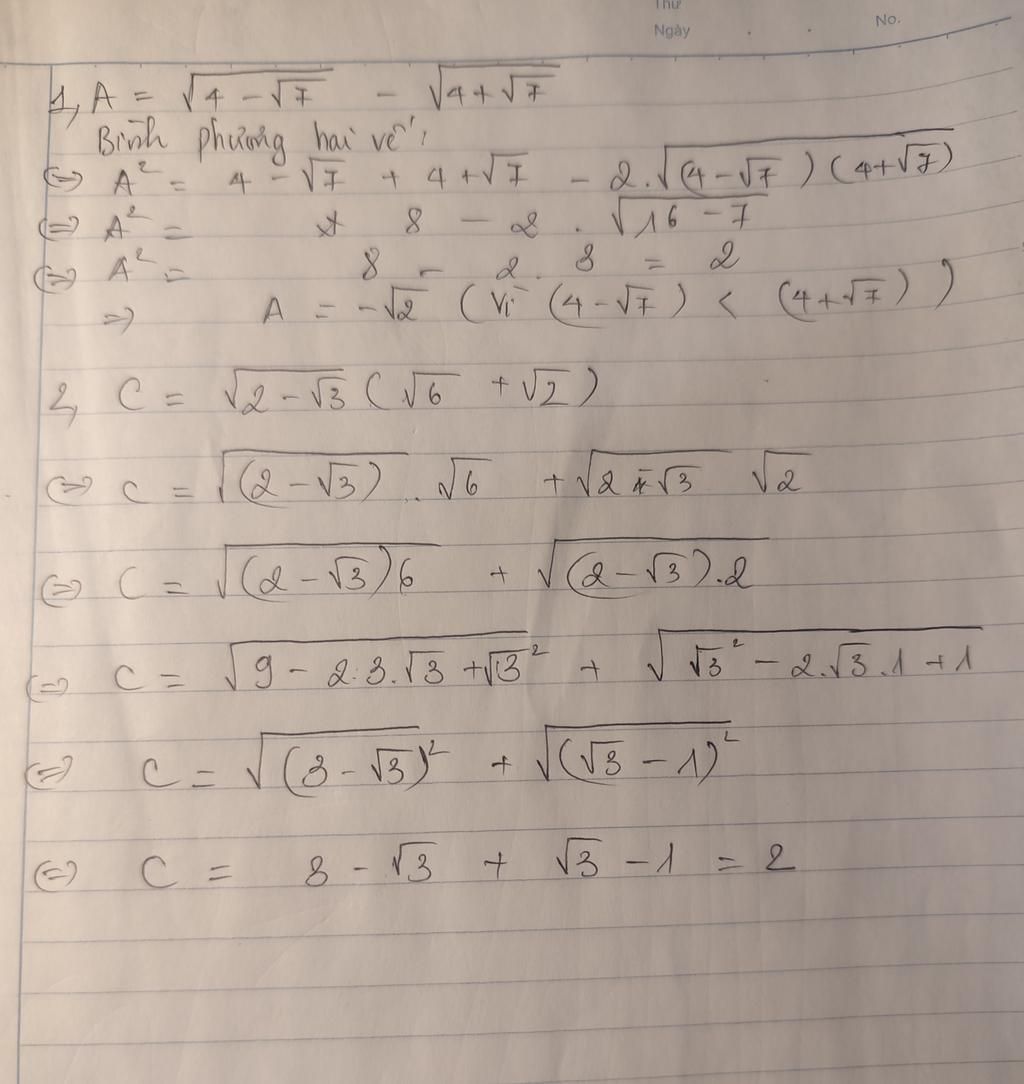 Thứ
Ngày
No.
1, A = √(4 − √7) − √(4 + √7)
Bình phương hai vế:
⇔ A² = 4 − √7 + 4 + √7 − 2.√((4 − √7)(4 + √7))
⇔ A² = 8 − 2 . √(16 − 7)
⇔ A² = 8 − 2 . 3 = 2
⇒ A = −√2 (Vì (4 − √7) < (4 + √7))
2, C = √(2 − √3) (√6 + √2)
⇔ C = √((2 − √3)) . √6 + √(2 − √3) √2
⇔ C = √((2 − √3)6) + √((2 − √3).2)
⇔ C = √(9 − 2.3.√3 + √3²) + √(√3² − 2.√3.1 + 1)
⇔ C = √((3 − √3)²) + √((√3 − 1)²)
⇔ C = 3 − √3 + √3 − 1 = 2